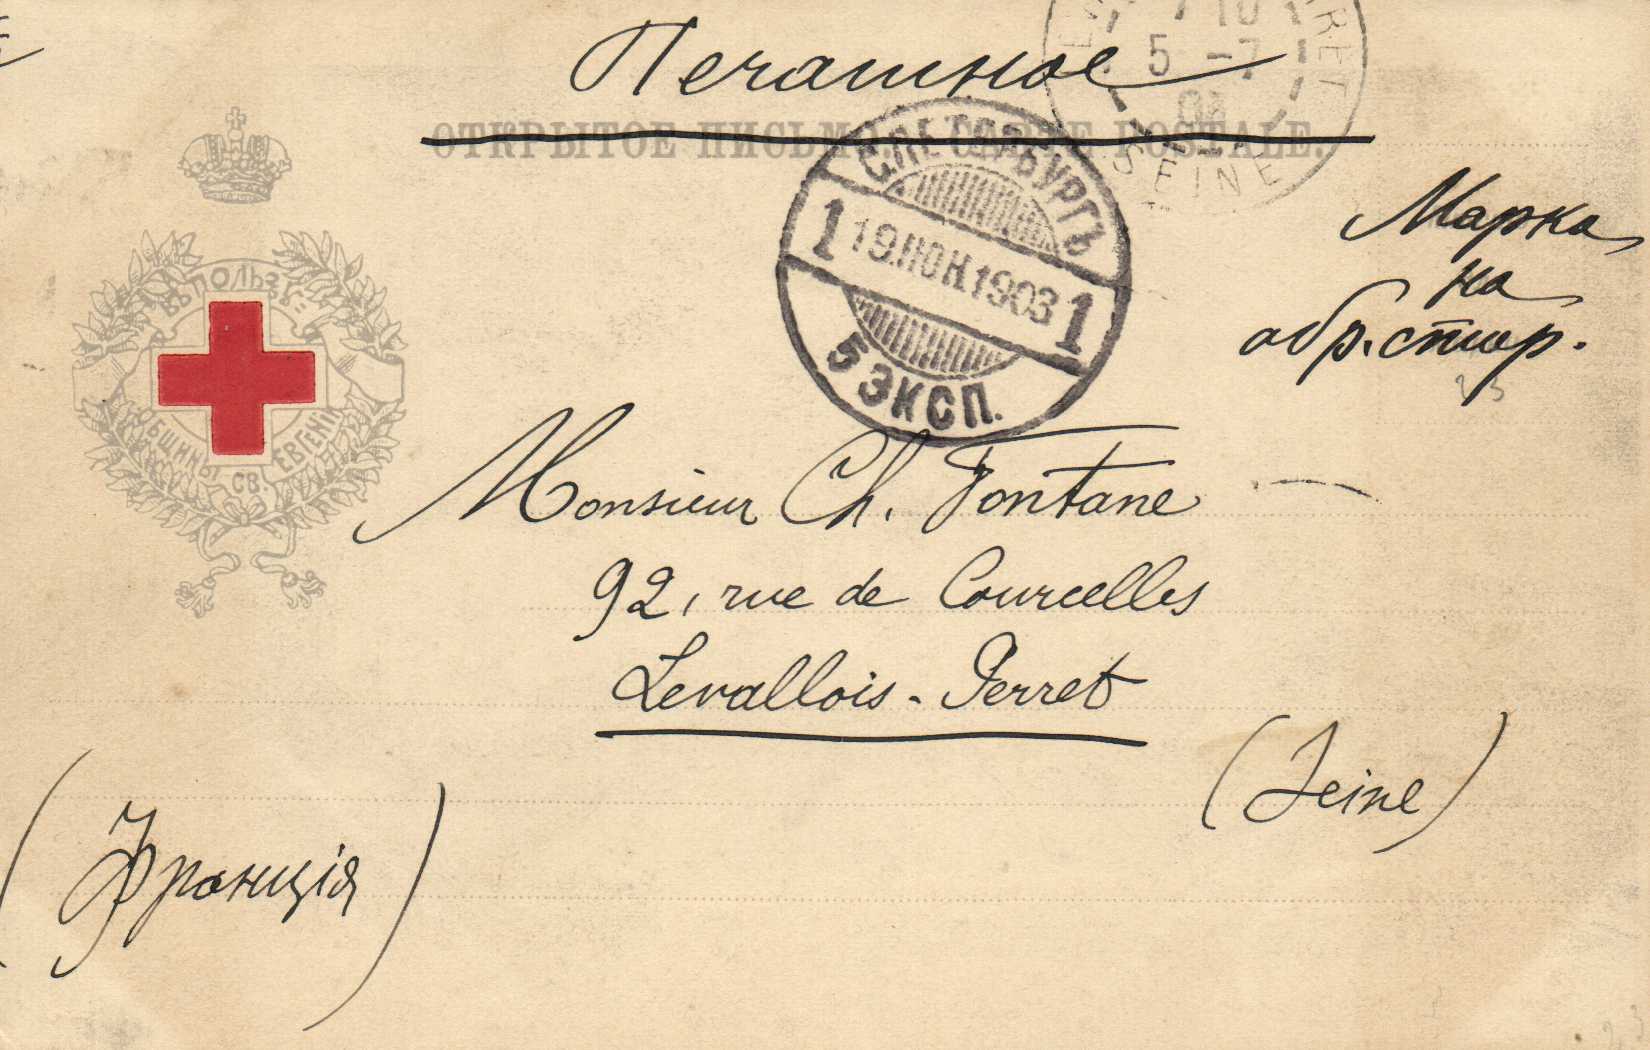 Печатное
ОТКРЫТОЕ ПИСЬМО. CARTE POSTALE.
5 -7
SEINE
С.ПЕТЕРБУРГЪ
1 19.ІЮН.1903 1
5 ЭКСП.
Марка
на
обр. стор.
ВЪ ПОЛЬЗУ
ОБЩИНЫ СВ. ЕВГЕНІИ
Monsieur Ch. Fontane
92, rue de Courcelles
Levallois-Perret
(Seine)
(Франція)